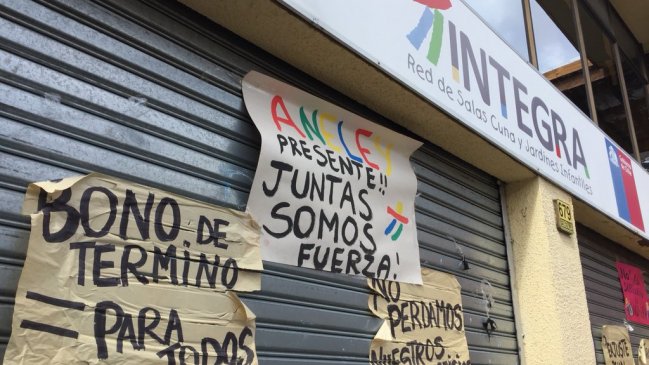 INTEGRA
Red de Salas Cuna y Jardines Infantiles
679
ANELEY
PRESENTE!!
JUNTAS
SOMOS
FUERZA!
BONO DE
TERMINO
= PARA
TODOS
NO
PERDAMOS
NUESTROS